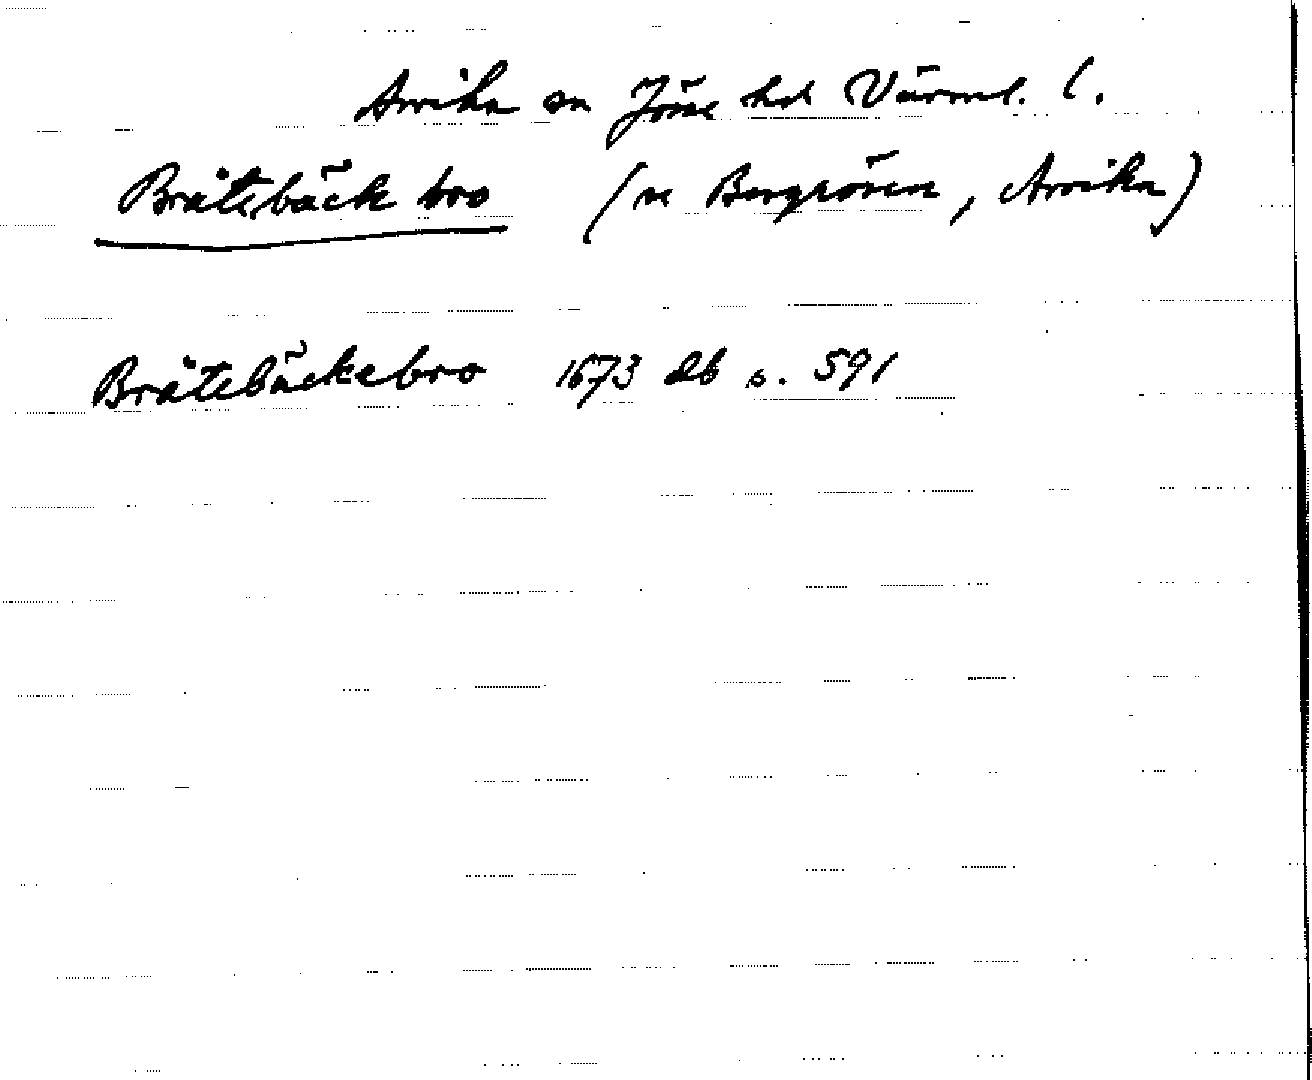 Arvika sn Jösse hd Värml. l.
Bråtebäck bro (n Bergsören, Arvika)
Bråtebäckebro 1673 db s. 591